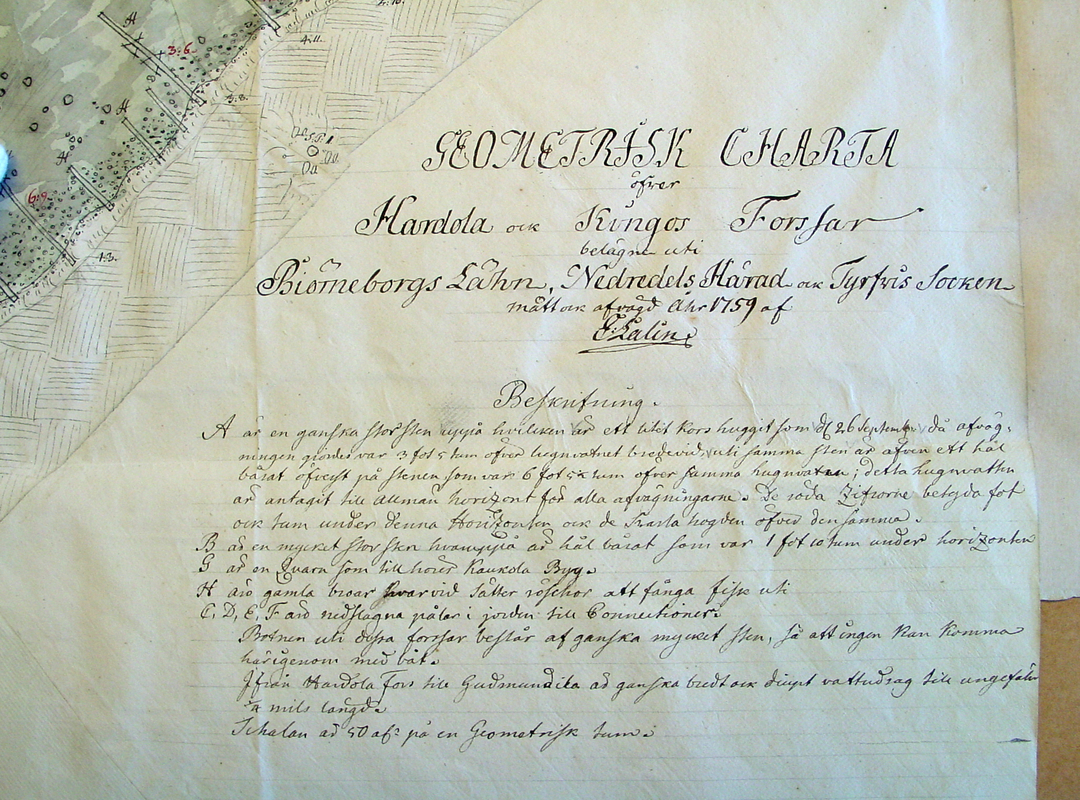 A
4:11
3:6.
A
3:8.
A
S.P.
6:9.
4:3.
GEOMETRISK CHARTA
öfver
Hardola ock Kungos Forssar
belägne uti
Biörneborgs Lähn, Nedredels Härad ock Tyrfvis Socken
mått ock afvägd Åhr 1759 af
E. Salin
Beskrifning.
A är en ganska stor sten uppå hvilcken är ett litet kors hugget som d. 26 September, då afväg-
ningen giordes var 3 fot 5 tum öfver lugnvatnet bredevid, uti samma sten är äfven ett hål
bårat öfverst på stenen som var 6 fot tum öfver samma lugnvatten; detta lugnvatten
är antagit till allmän horizont för alla afvägningarne. De röda Zifrorne betyda fot
ock tum under denna Horizonten ock de svarta högden öfver densamma.
B är en mycket stor sten hvaruppå är hål bårat som var 1 fot 10 tum under horizonten
G är en Qvarn som till hörer Kaukola By.
H äro gamla broar hvarvid sätter att fånga fisk uti
C, D, E, F äro nedslagna pålar i jorden till Connectioner.
Botnen uti dessa forssar består af ganska mycket sten, så att ingen kan komma
härigenom med båt.
Ifrån Hardola Fors till är ganska bredt ock diupt vattudrag till ungefär
mils längd.
Schalan är 50 al. på en Geometrisk tum.